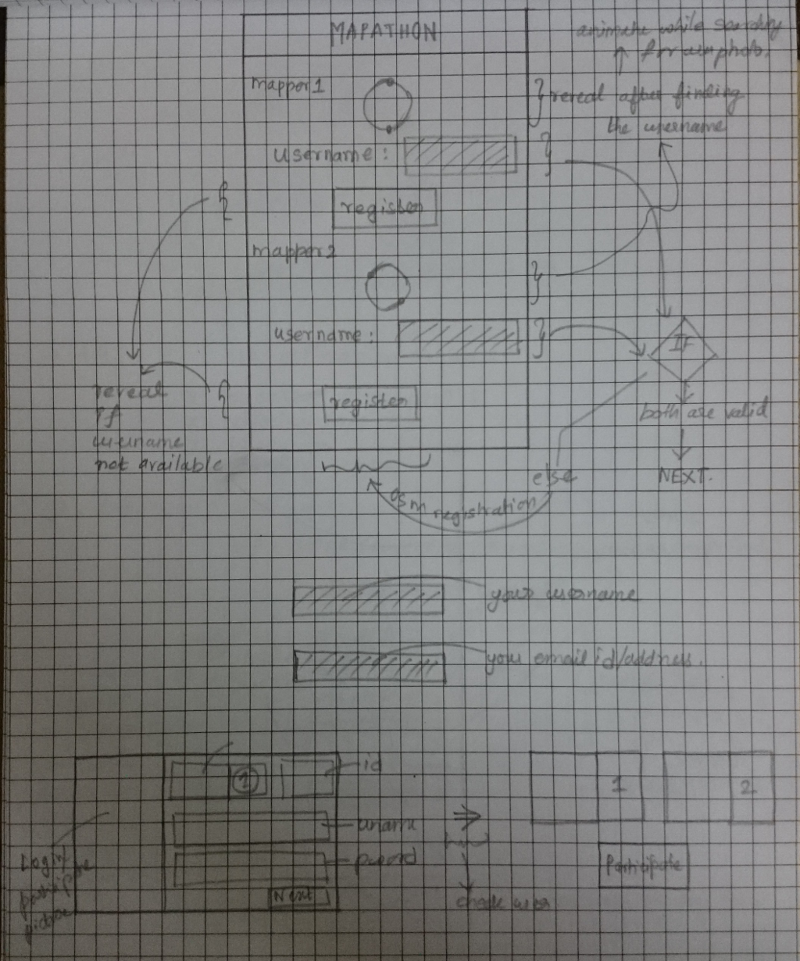 MAPATHON
animate while searching
for osm photo.
mapper1
reveal after finding
the username
username :
register
mapper2
username :
IF
reveal
if
username
not available
register
both are valid
else
NEXT.
osm registration
your username
your email id/address.
1
id
1
2
uname
Login
participate
picture
Participate
Next
check user